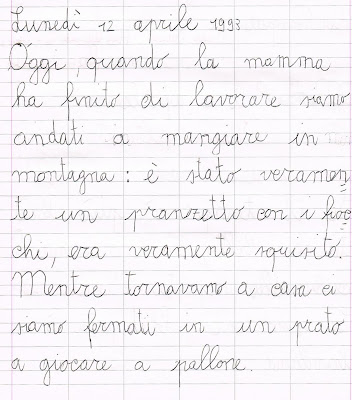 Lunedì 12 aprile 1993
Oggi, quando la mamma
ha finito di lavorare siamo
andati a mangiare in
montagna: è stato veramen
te un pranzetto con i fioc
chi, era veramente squisito.
Mentre tornavamo a casa ci
siamo fermati in un prato
a giocare a pallone.